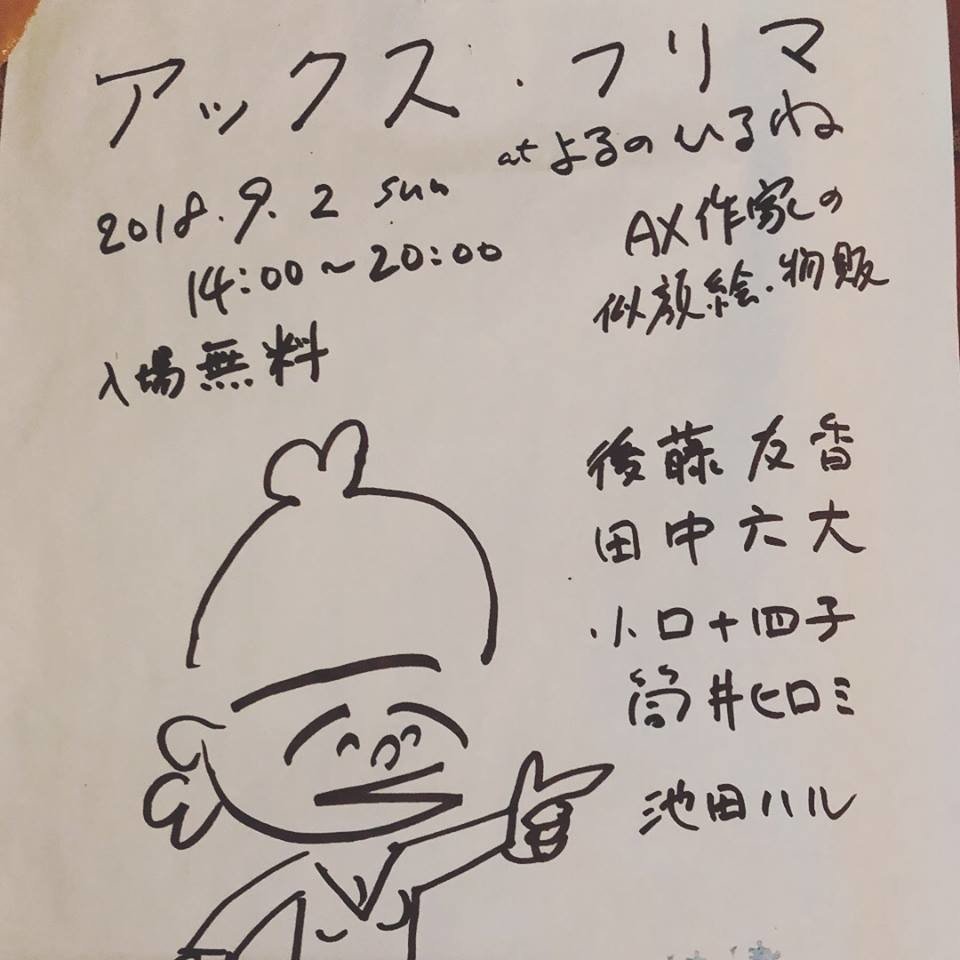 アックス・フリマ
at よるのひるね
2018.9.2 sun
14:00~20:00
入場無料
AX作家の
似顔絵・物販
後藤友香
田中六大
小口十四子
筒井ヒロミ
池田ハル